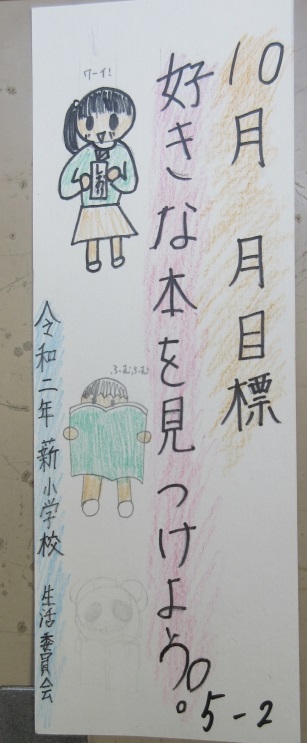 10月 月目標
好きな本を見つけよう。
5-2
ワーイ!
しおり
ふむふむ
令和二年 薪小学校 生活委員会